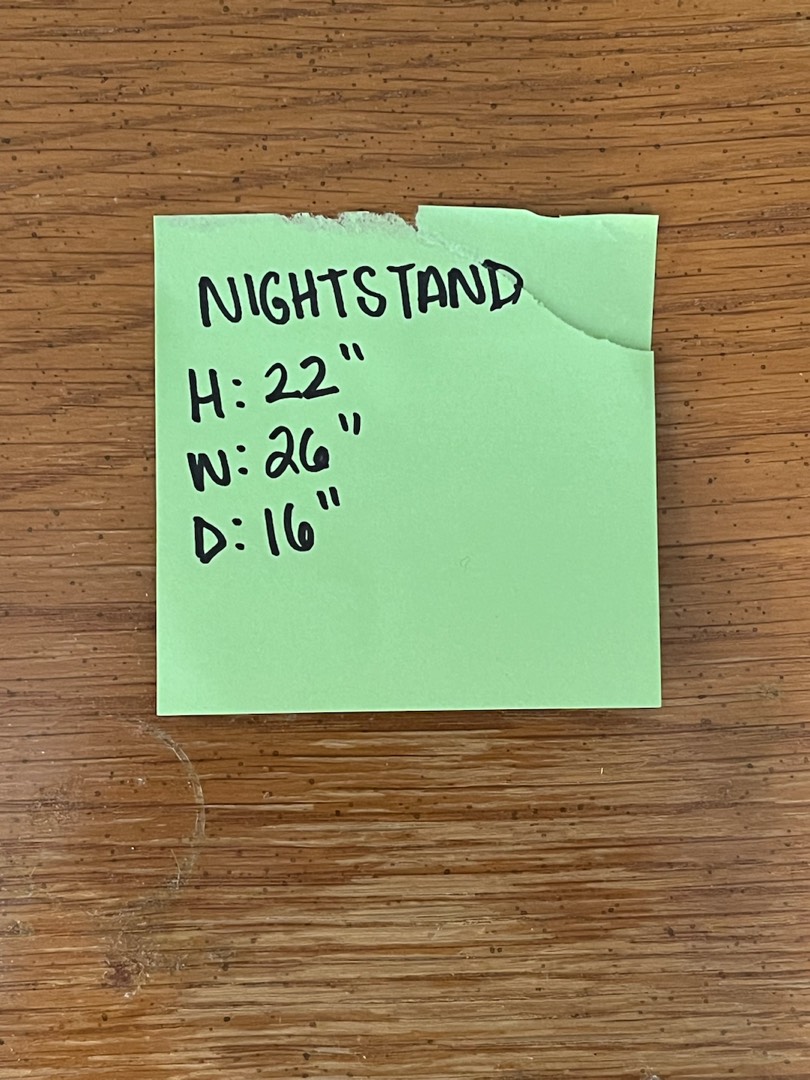 NIGHTSTAND
H: 22"
W: 26"
D: 16"